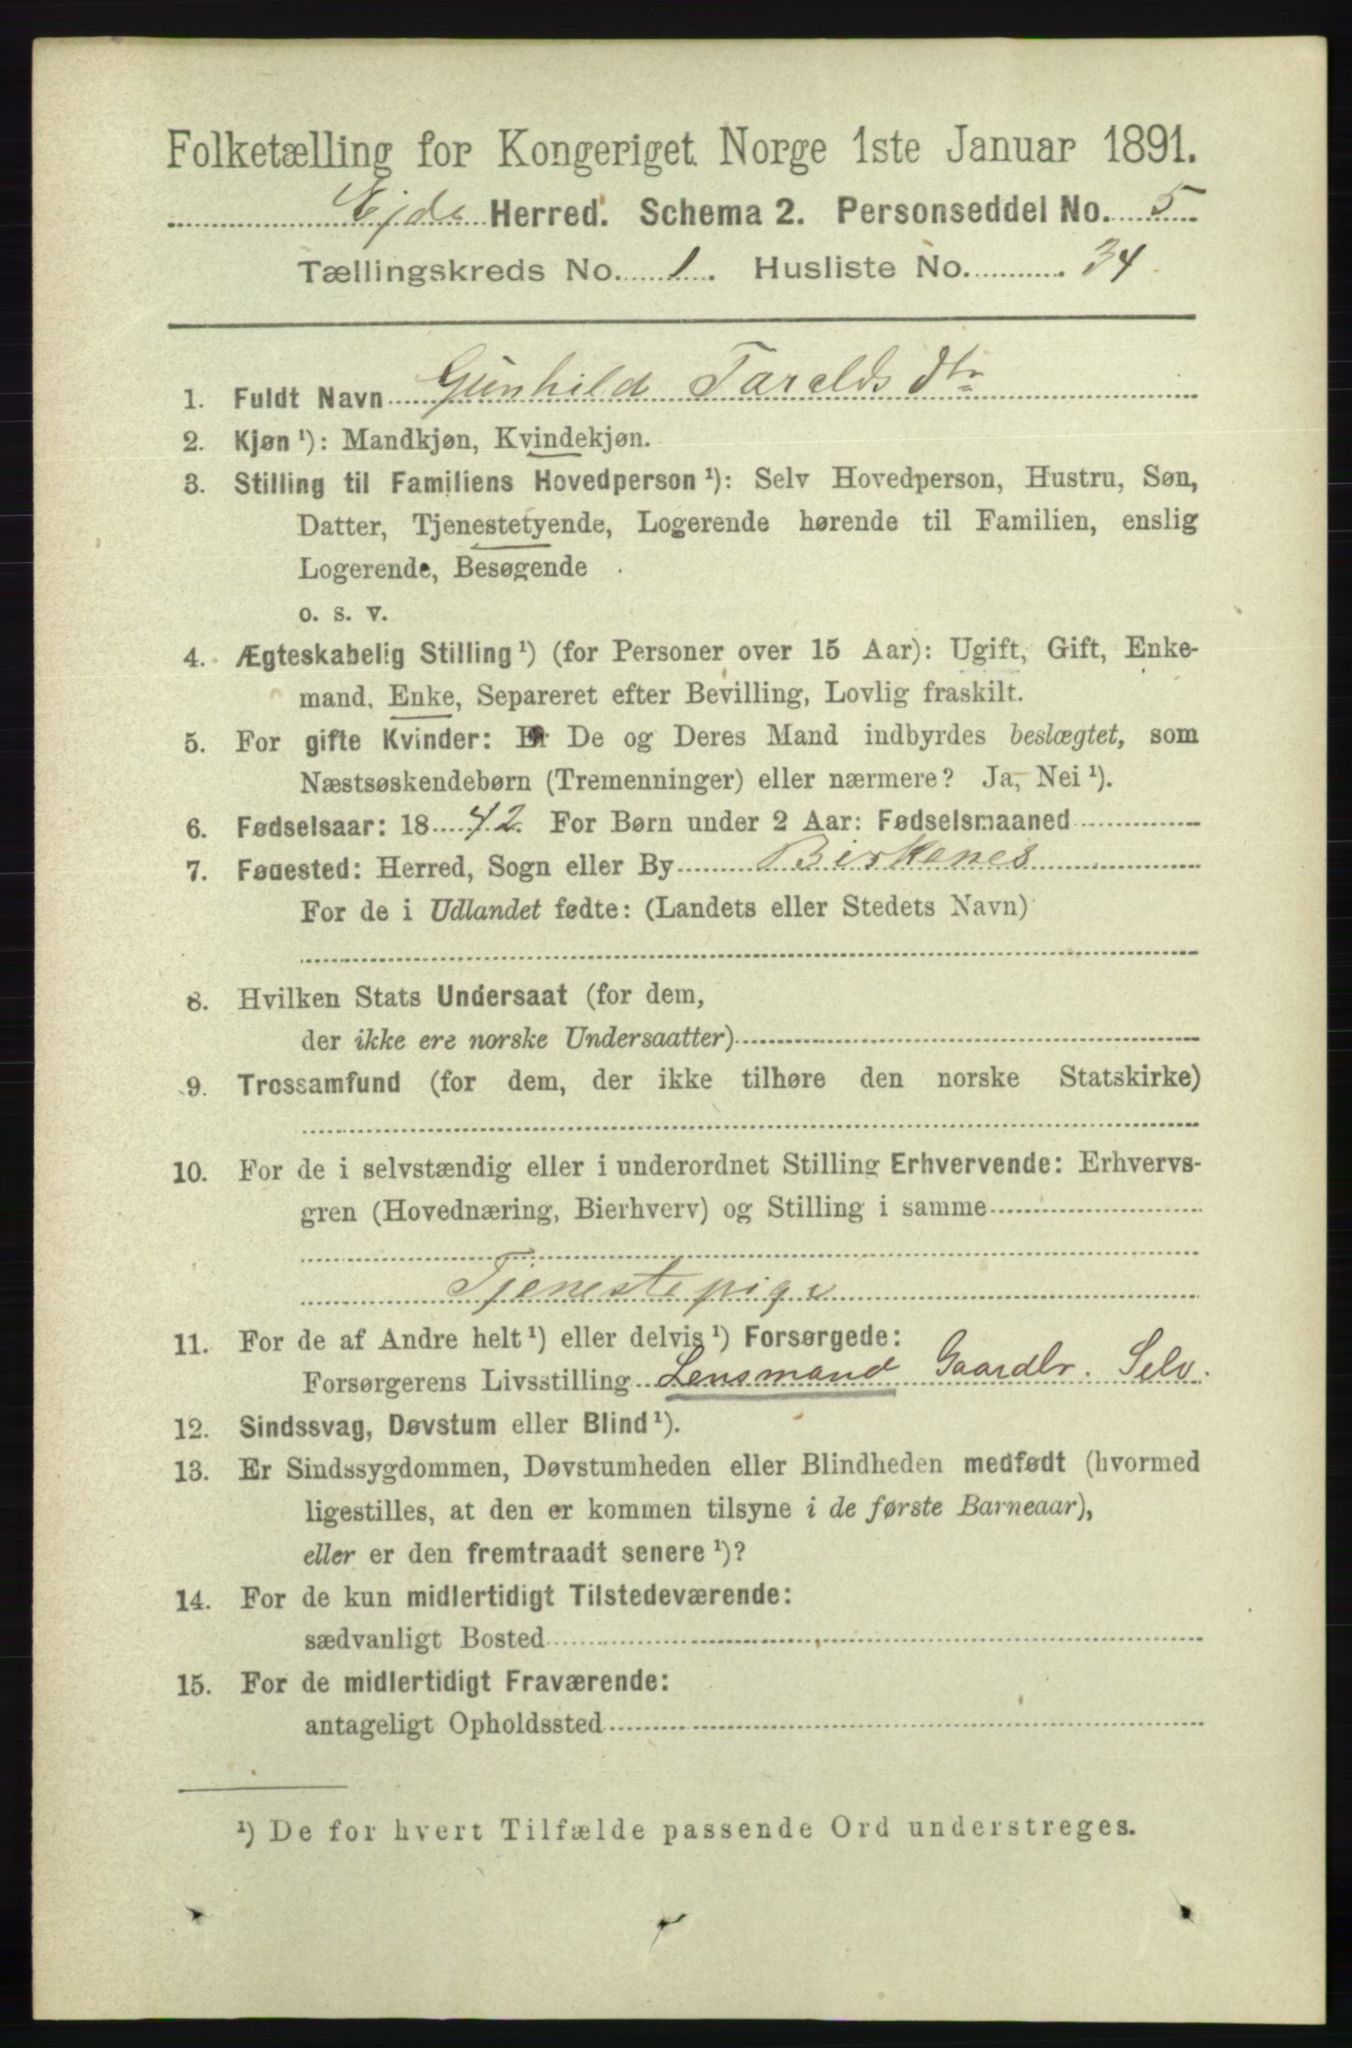 Folketælling for Kongeriget Norge 1ste Januar 1891.
Ejde Herred. Schema 2. Personseddel No. 5
Tællingskreds No. 1. Husliste No. 34
1. Fuldt Navn Gunhild Taraldsdtr
2. Kjøn ¹): Mandkjøn, Kvindekjøn.
3. Stilling til Familiens Hovedperson ¹): Selv Hovedperson, Hustru, Søn,
Datter, Tjenestetyende, Logerende hørende til Familien, enslig
Logerende, Besøgende
o. s. v.
4. Ægteskabelig Stilling ¹) (for Personer over 15 Aar): Ugift, Gift, Enke-
mand, Enke, Separeret efter Bevilling, Lovlig fraskilt.
5. For gifte Kvinder: Er De og Deres Mand indbyrdes beslægtet, som
Næstsøskendebørn (Tremenninger) eller nærmere? Ja, Nei ¹).
6. Fødselsaar: 1842. For Børn under 2 Aar: Fødselsmaaned
7. Fødested: Herred, Sogn eller By Birkenes
For de i Udlandet fødte: (Landets eller Stedets Navn)
8. Hvilken Stats Undersaat (for dem,
der ikke ere norske Undersaatter)
9. Trossamfund (for dem, der ikke tilhøre den norske Statskirke)
10. For de i selvstændig eller i underordnet Stilling Erhvervende: Erhvervs-
gren (Hovednæring, Bierhverv) og Stilling i samme
Tjenestepige
11. For de af Andre helt ¹) eller delvis ¹) Forsørgede:
Forsørgerens Livsstilling Lensmand Gaardbr. Selv.
12. Sindssvag, Døvstum eller Blind ¹).
13. Er Sindssygdommen, Døvstumheden eller Blindheden medfødt (hvormed
ligestilles, at den er kommen tilsyne i de første Barneaar),
eller er den fremtraadt senere ¹)?
14. For de kun midlertidigt Tilstedeværende:
sædvanligt Bosted
15. For de midlertidigt Fraværende:
antageligt Opholdssted
¹) De for hvert Tilfælde passende Ord understreges.